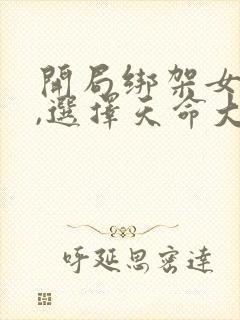 開局綁架女
,選擇天命大
呼延思密達